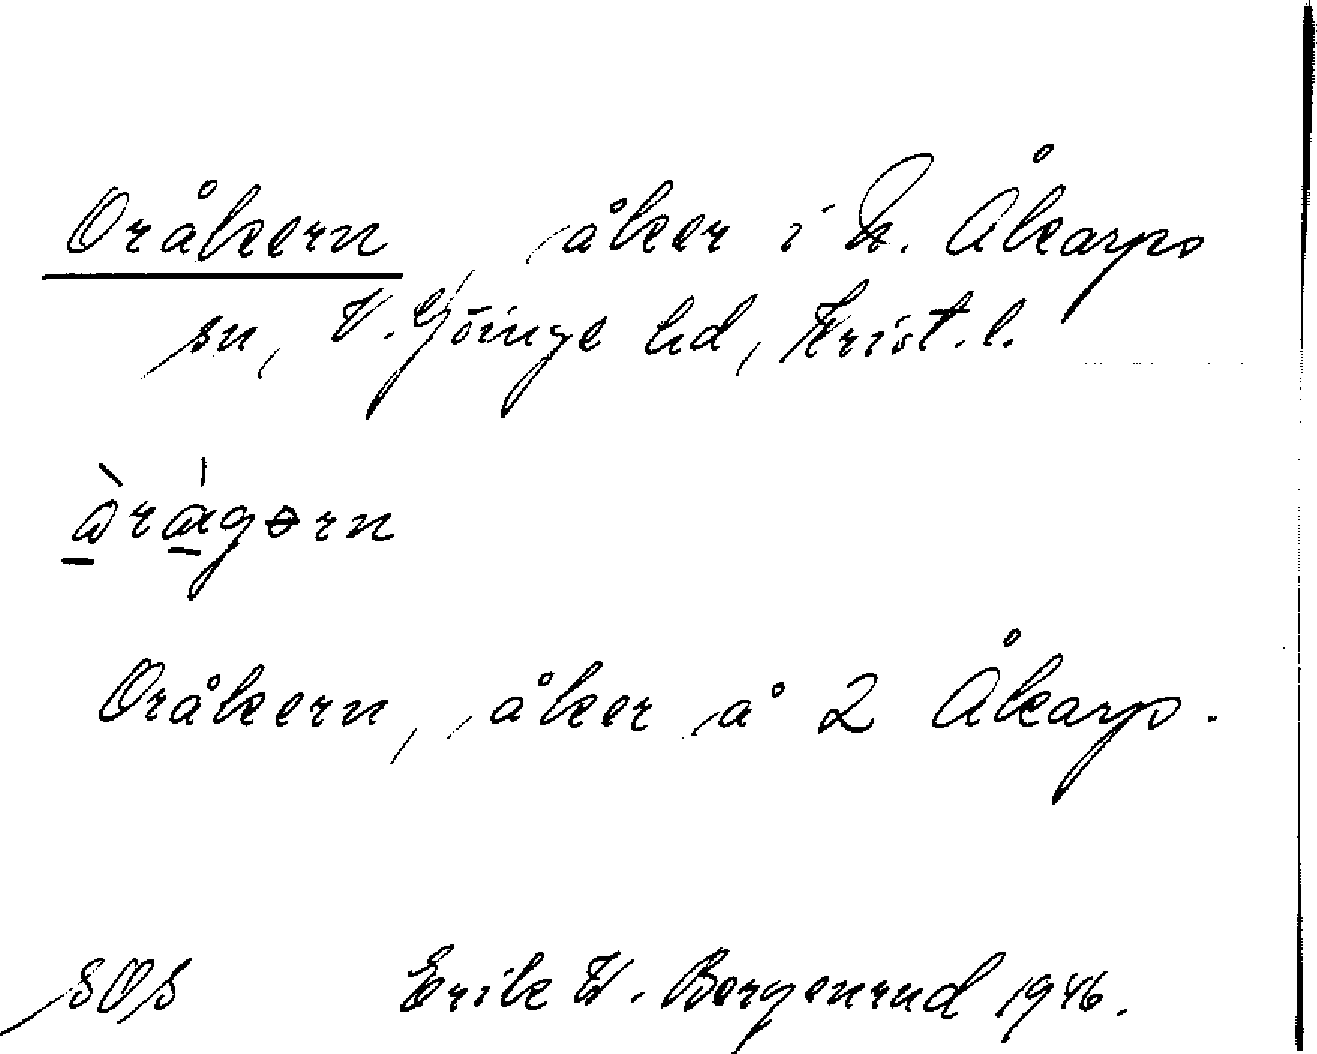 Oråkern, åker i N. Åkarps
sn, V. Göinge hd, Krist. l.
àrágərn
Oråkern, åker å 2 Åkarp.
SOS Erik W. Bergenrud 1946.